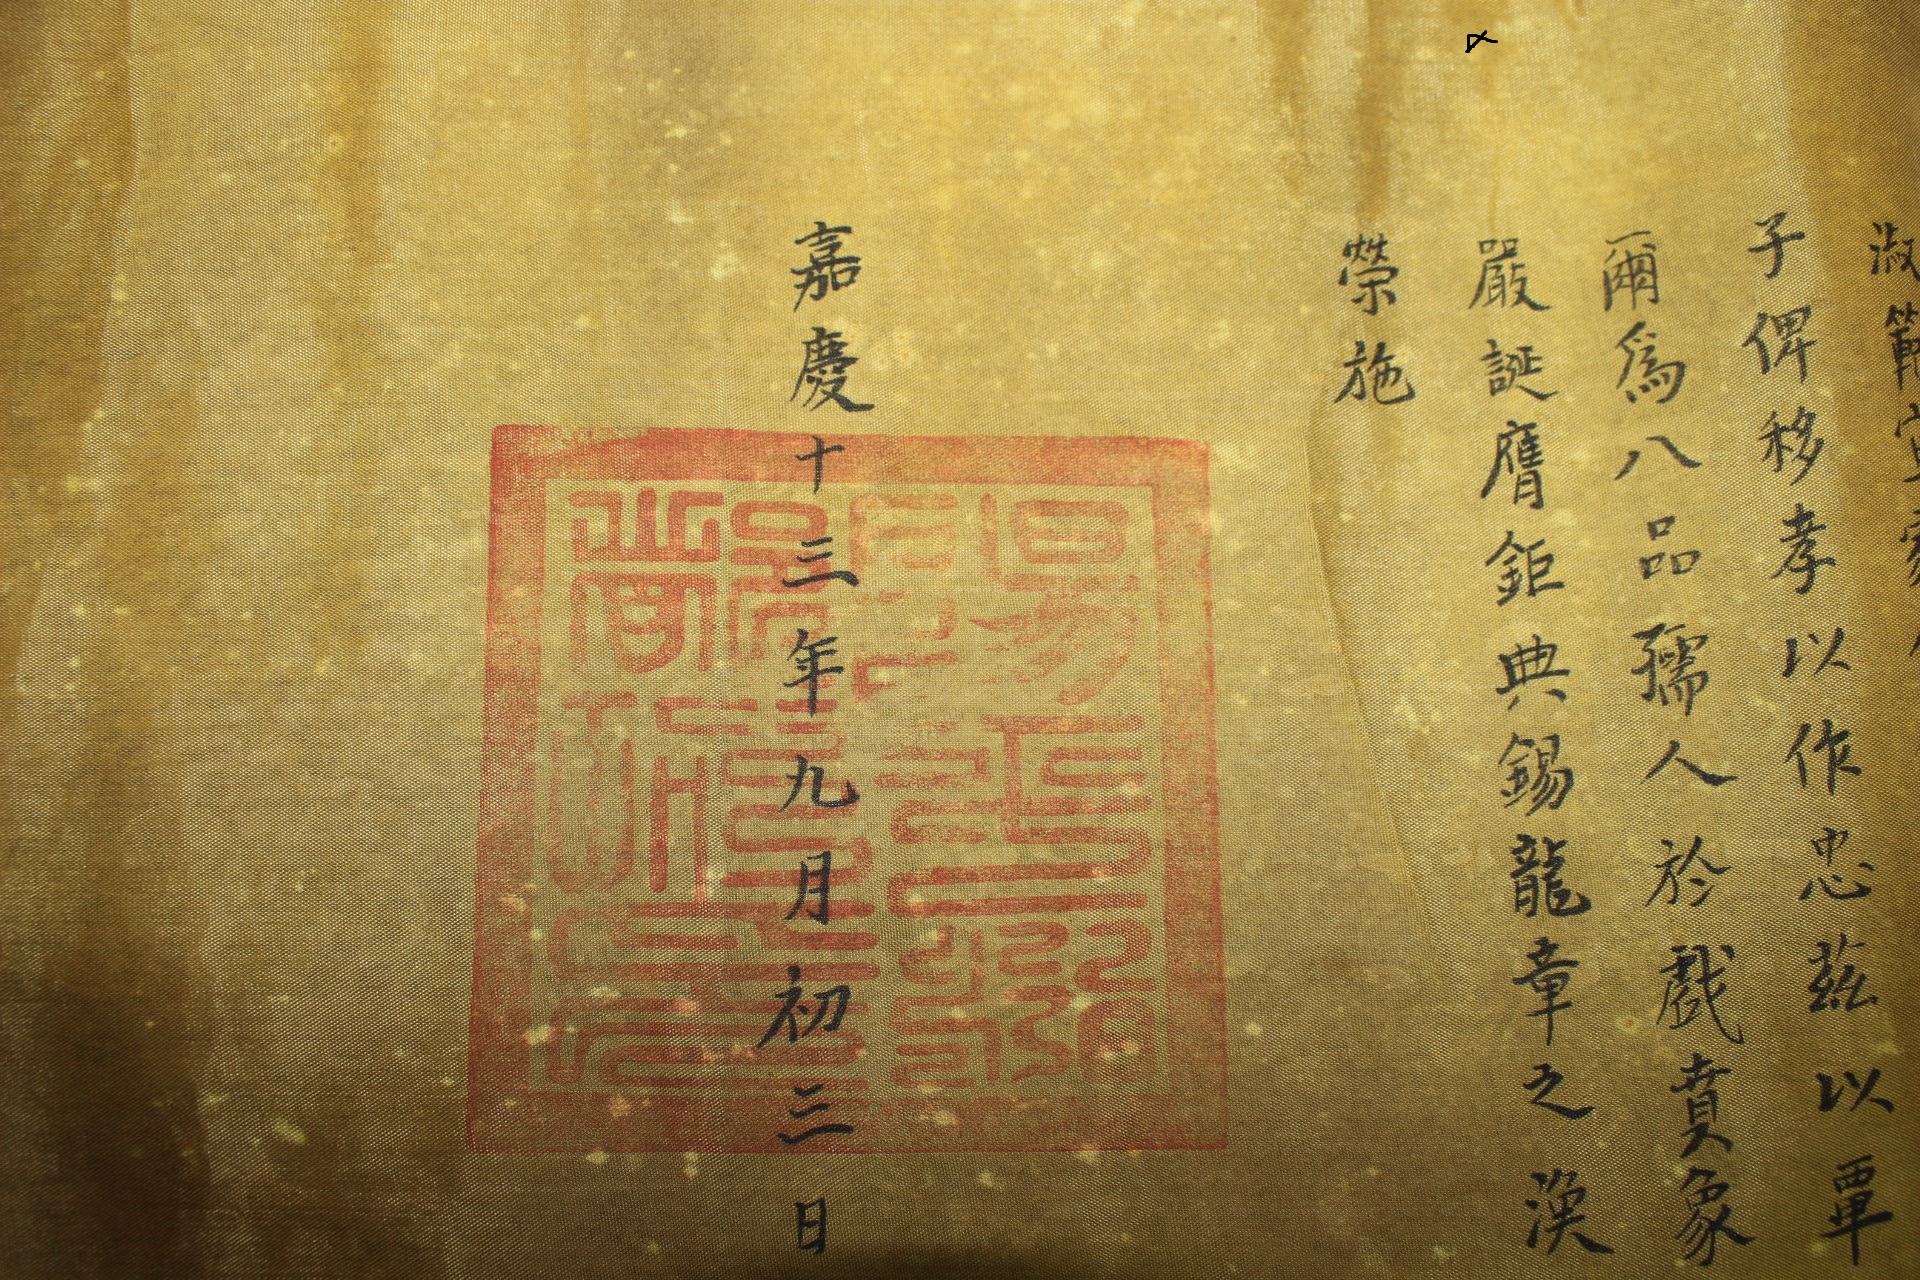 淑範宜家
子俾移孝以作忠茲以覃
爾為八品孺人於戲賁象
嚴誕膺鉅典錫龍章之渙
榮施
嘉慶十三年九月初三日